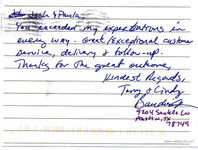 Josh & Paula,
You exceeded my expectations in
every way. Great/Exceptional customer
service, delivery & follow-up.
Thanks for the great outcome,
Kindest Regards,
Terry & Cindy
9204
Austin, TX
78749